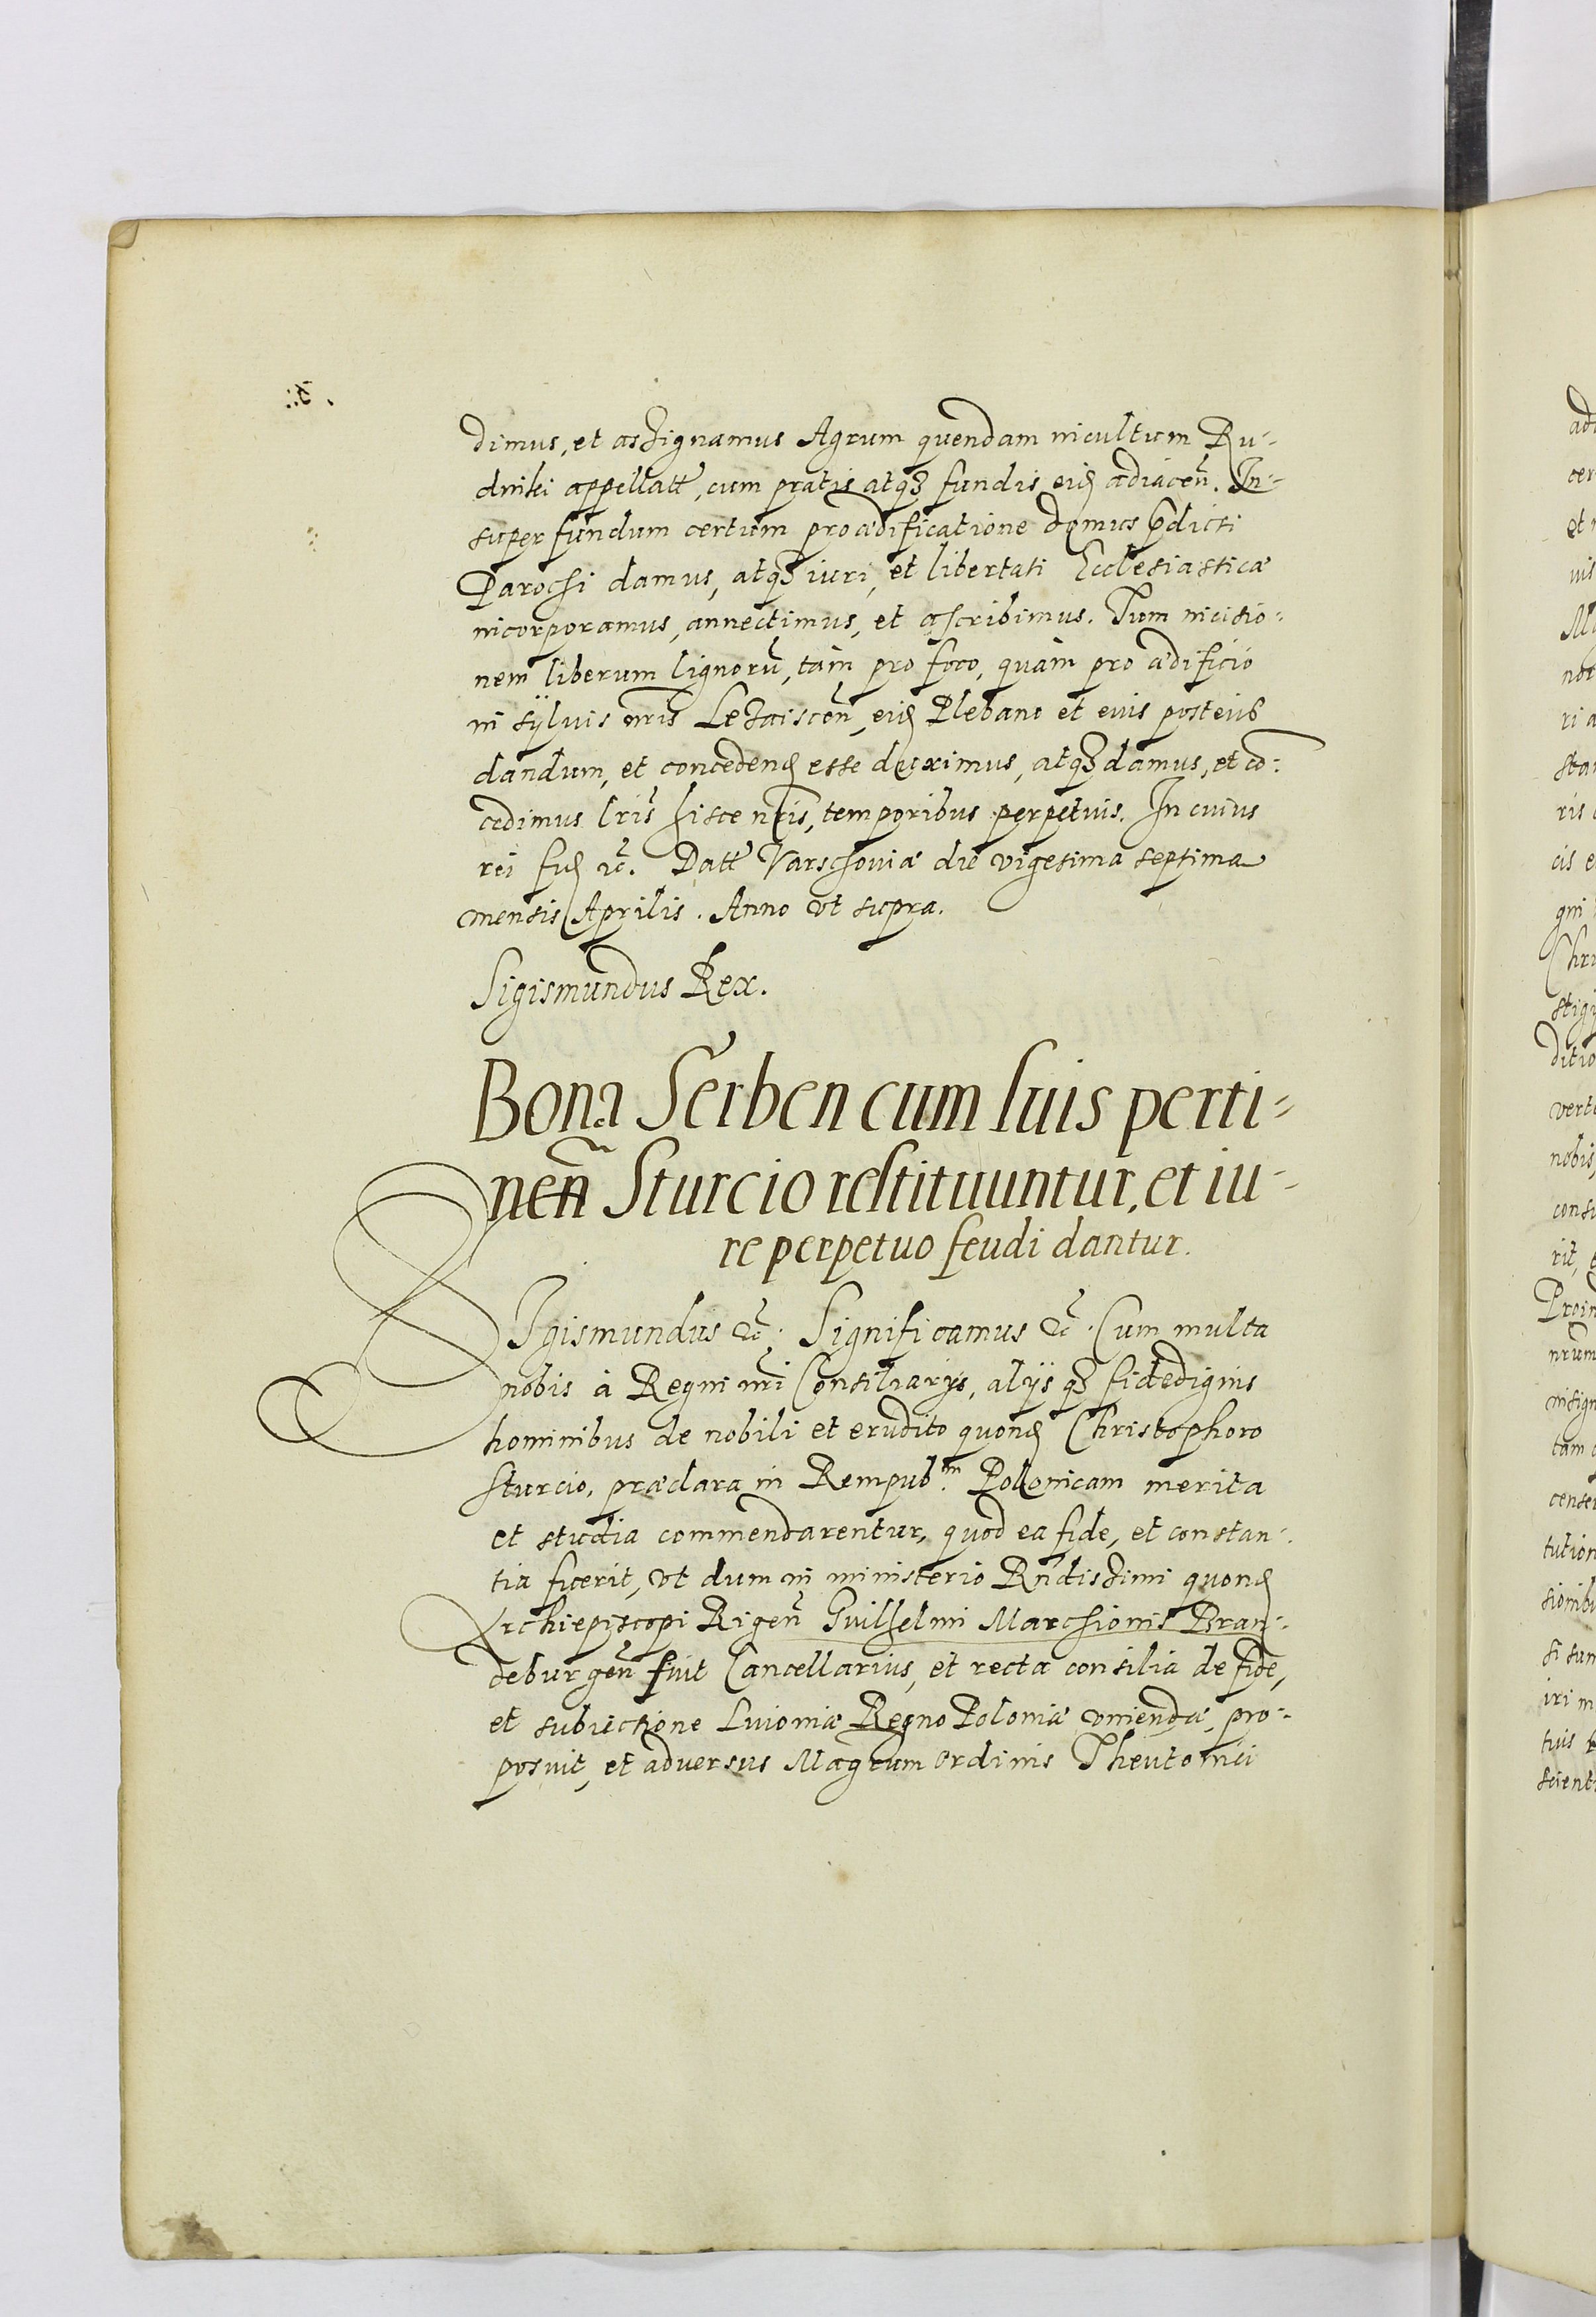 dimus, et assignamus Agrum quendam incultum Ru-
dniki appellatt, cum pratis atq3 fundis eid adiaceñ. In-
super fundum certum pro ædificatione domus p̃dicti
Parochi damus, atq3 iuri, et libertati Ecclesiasticæ
incorporamus, annectimus, et ascribimus. Tum incisio-
nem liberum lignorũ, tàm pro foco, quàm pro ædificio
in sÿluis nr̃is Leżaisceñ, eid Plebano et euis posterib
dandum, et concedend esse duximus, atq3 damus, et cõ-
cedimus lr̃is hisce nr̃is, temporibus perpetuis. In cuius
rei fid etc̃. Datt Varschouiæ die vigesima septima
mensis Aprilis. Anno vt supra.
Sigismundus Rex.
Bona Serben cum suis perti-
neñ Sturcio restituuntur, et iu-
re perpetuo feudi dantur.
SIgismundus &c̃. Significamus &c̃. Cum multa
nobis à Regni nr̃i Consiliarijs, alijs q3 fidedignis
hominibus de nobili et erudito quond Christophoro
Sturcio, præclara in Rempub.m Polonicam merita
et studia commendarentur, quod ea fide, et constan-
tia fuerit, vt dum in ministerio Rñdissimi quond
Archiepiscopi Rigeñ Guilhelmi Marchionis Bran-
deburgeñ fuit Cancellarius, et recta consilia de fide,
et subiectione Liuoniæ Regno Poloniæ vnienda, pro-
posuit, et aduersus Magr̃um ordinis Theutonici